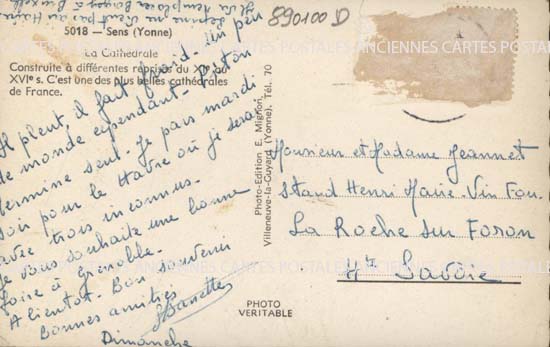 890100 D
5018 — Sens (Yonne)
La Cathédrale
Construite à différentes reprises du XIIe au
XVIe s. C'est une des plus belles cathédrales
de France.
CARTES POSTALES ANCIENNES CARTES POSTALES
Il pleut, il fait froid. Un peu
de monde cependant. Piston
termine seul. Je pars mardi
soir pour le Havre où je serai
avec trois inconnus.
Je vous souhaite une bonne
foire à Grenoble.
A bientôt. Bon souvenir
Bonnes amitiés
Dimanche
Photo-Edition E. Mignon
Villeneuve-la-Guyard (Yonne). Tél. 70
PHOTO
VERITABLE
Monsieur et Madame Jeannet
Stand Henri Maire. Vin Fou.
La Roche sur Foron
Hte Savoie